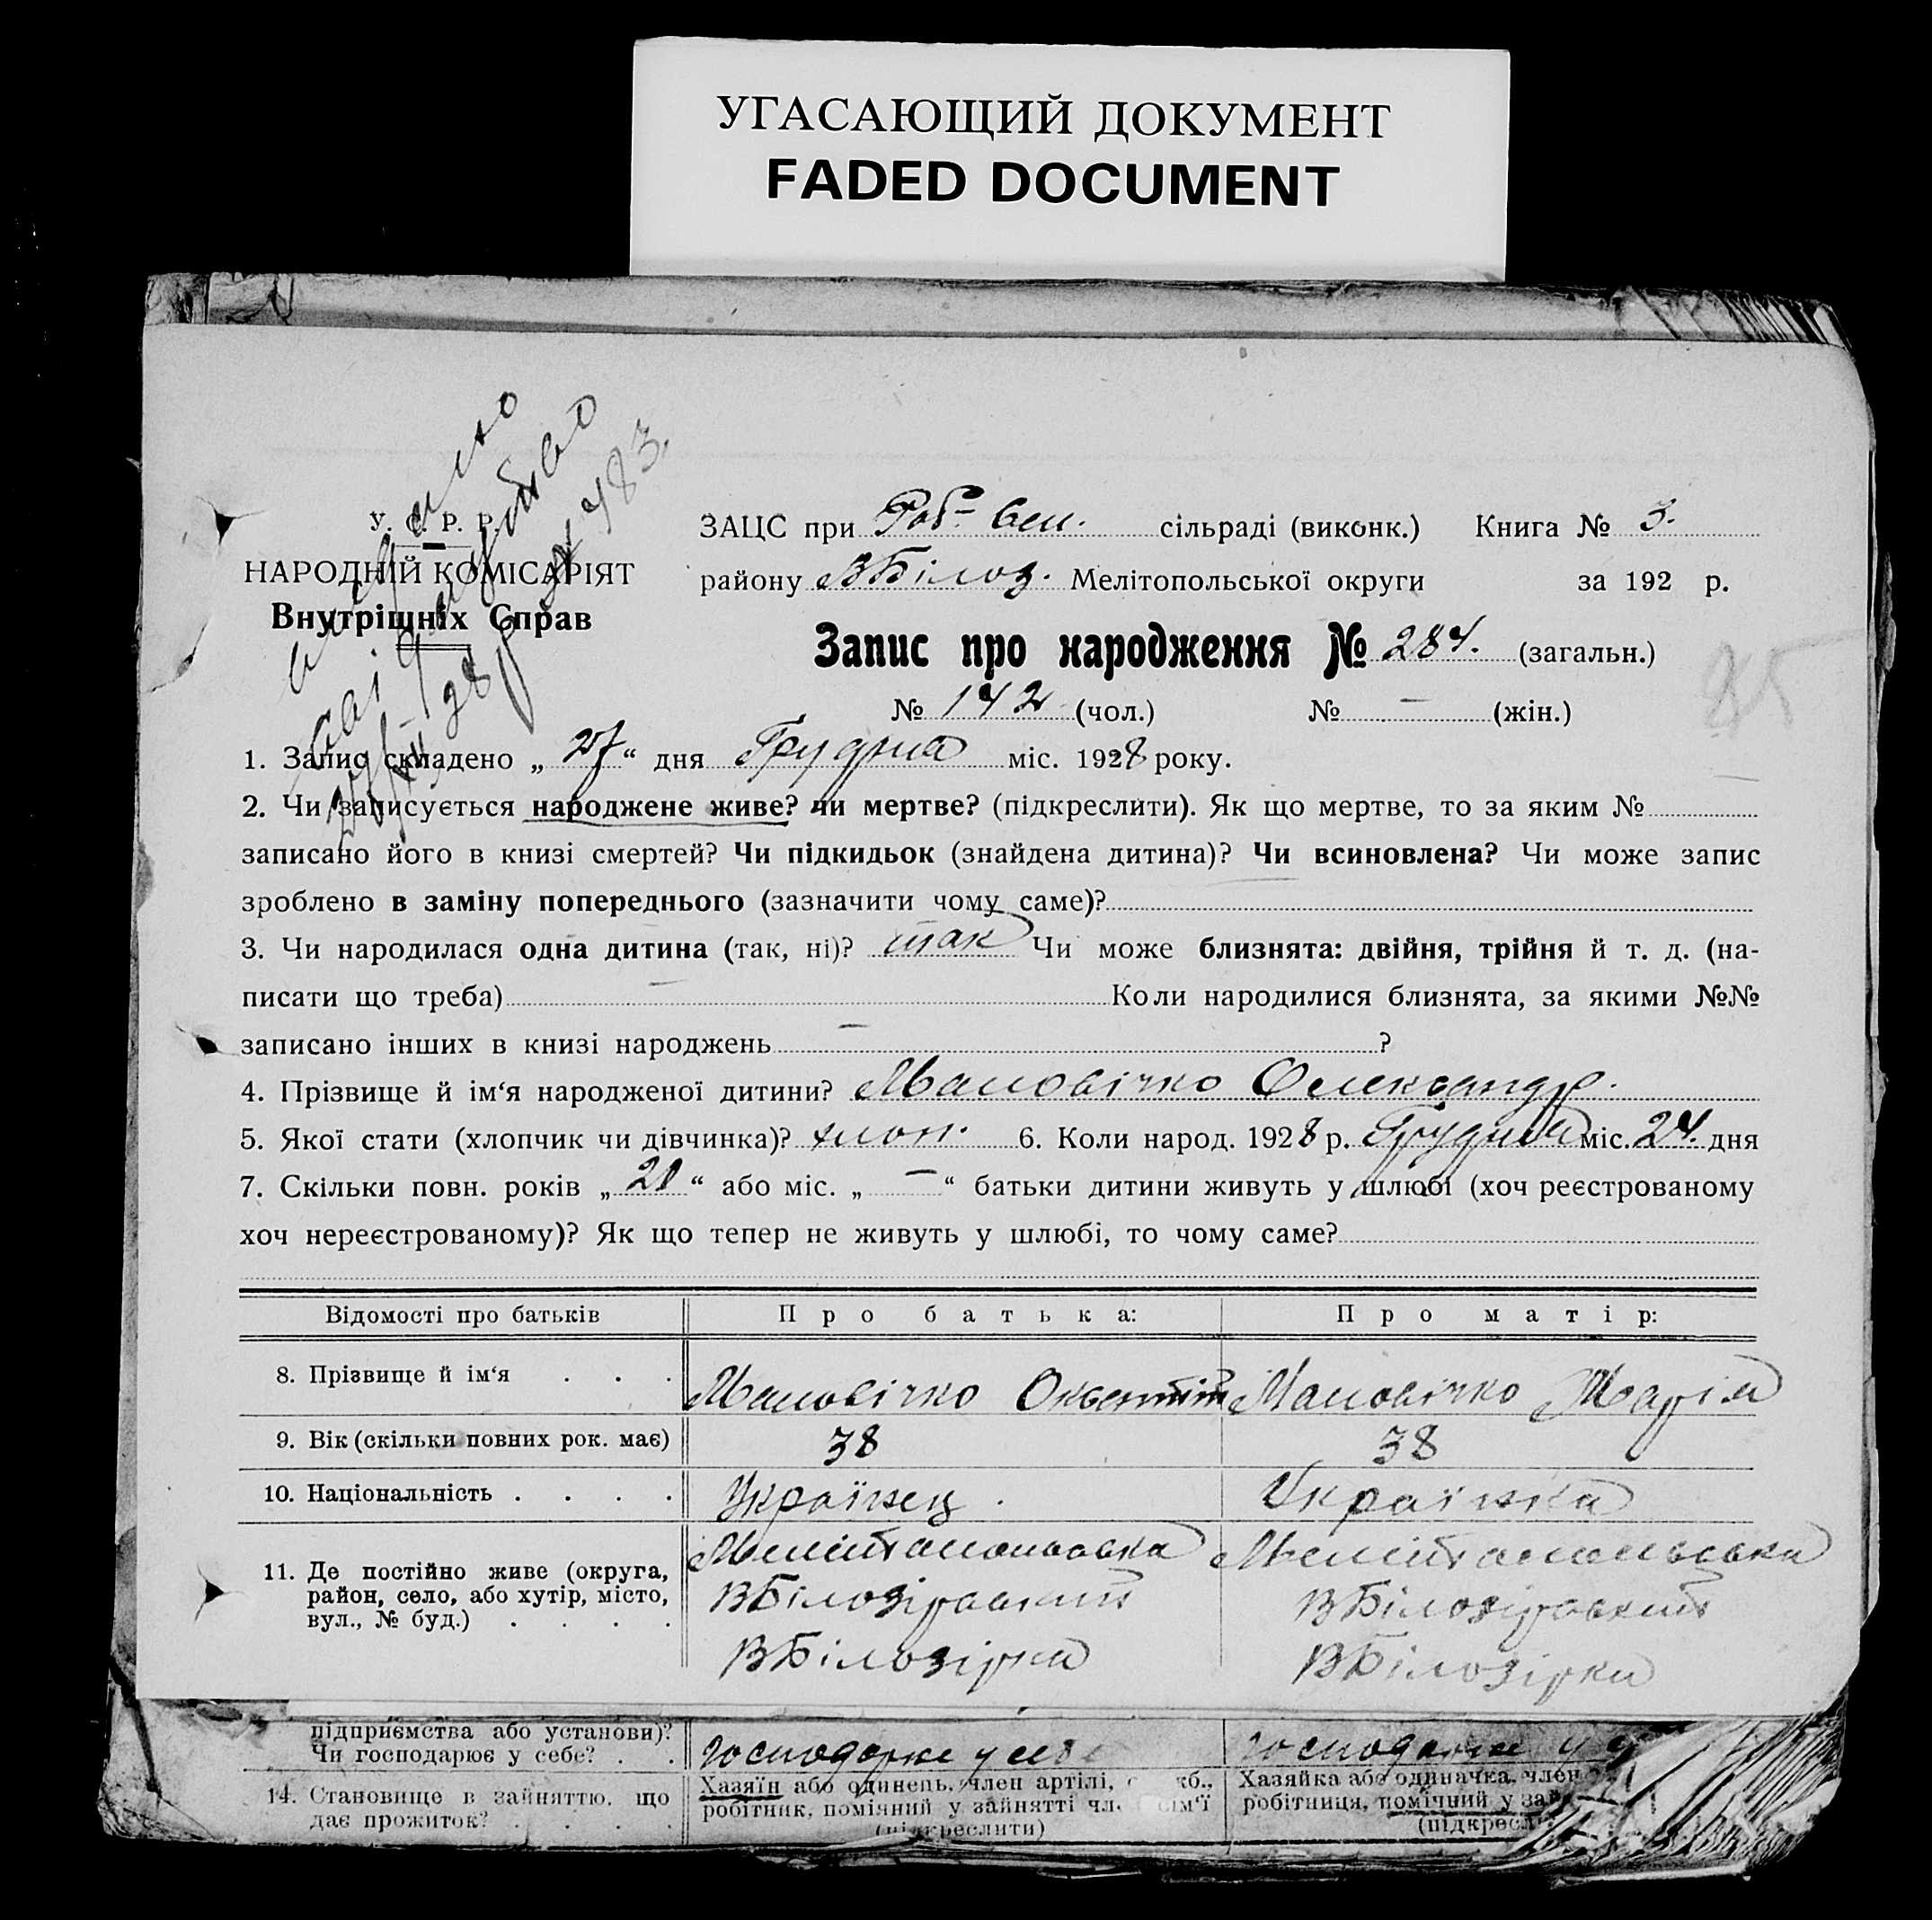 УГАСАЮЩИЙ ДОКУМЕНТ
FADED DOCUMENT
Видано
свідоцтво
27/XII-28 р № 483.
У. С. Р. Р.
НАРОДНІЙ КОМІСАРІЯТ
Внутрішніх Справ
ЗАЦС при Роб- сел. сільраді (виконк.) Книга № 3.
району ВБілоз. Мелітопольської округи за 192 р.
Запис про народження № 284. (загальн.)
№ 142 (чол.) № – (жін.)
85
1. Запис складено „ 27 “ дня Грудня міс. 1928 року.
2. Чи записується народжене живе? чи мертве? (підкреслити). Як що мертве, то за яким №
записано його в книзі смертей? Чи підкидьок (знайдена дитина)? Чи всиновлена? Чи може запис
зроблено в заміну попереднього (зазначити чому саме)?
3. Чи народилася одна дитина (так, ні)? так Чи може близнята: двійня, трійня й т. д. (на-
писати що треба) – Коли народилися близнята, за якими №№
записано інших в книзі народжень – ?
4. Прізвище й ім‘я народженої дитини? Маловічко Олександр.
5. Якої стати (хлопчик чи дівчинка)? хлоп. 6. Коли народ. 1928 р. Грудня міс. 24. дня
7. Скільки повн. років „ 20 “ або міс. „ – “ батьки дитини живуть у шлюбі (хоч реєстрованому
хоч нереєстрованому)? Як що тепер не живуть у шлюбі, то чому саме?
Відомості про батьків Про батька: Про матір:
8. Прізвище й ім‘я . . . Маловічко Маловічко Марія
9. Вік (скільки повних рок. має) 38 38
10. Національність . . . . Українец . Українка
11. Де постійно живе (округа, Мелітопольська Мелітопольська
район, село, або хутір, місто, ВБілозірський ВБілозірський
вул., № буд.) . . . . ВБілозірка ВБілозірка
підприємства або установи)?
Чи господарює у себе? . . господарює у себе господарює у
14. Становище в зайняттю, що Хазяїн або одинець, член артілі, кб., Хазяйка або одиначка, член
дає прожиток? . . . . робітник, помічний у зайнятті чл. сім‘ї робітниця, помічний у зай
(підкреслити) (підкресл